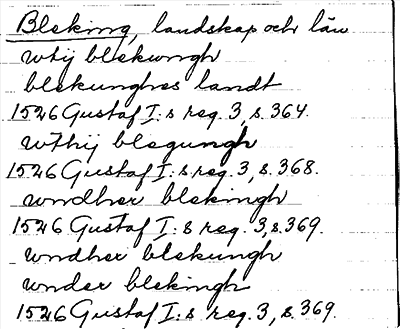 Bleking, landskap och län
wtij blekungh
blekunghes landt
1526 Gustaf I:s reg. 3, s. 364.
wthij blegungh
1526 Gustaf I:s reg. 3, s. 368.
wndher blekingh
1526 Gustaf I:s reg. 3, s. 369.
wndher blekungh
wnder blekingh
1526 Gustaf I:s reg. 3, s. 369.